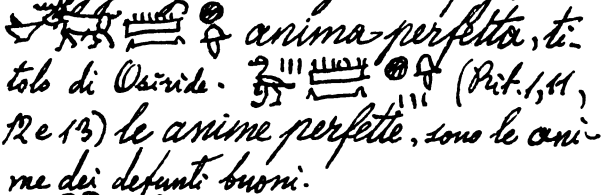 anima perfetta, ti-
tolo di Osiride. (Rit. 1, 11,
12 e 13) le anime perfette, sono le ani-
me dei defunti buoni.